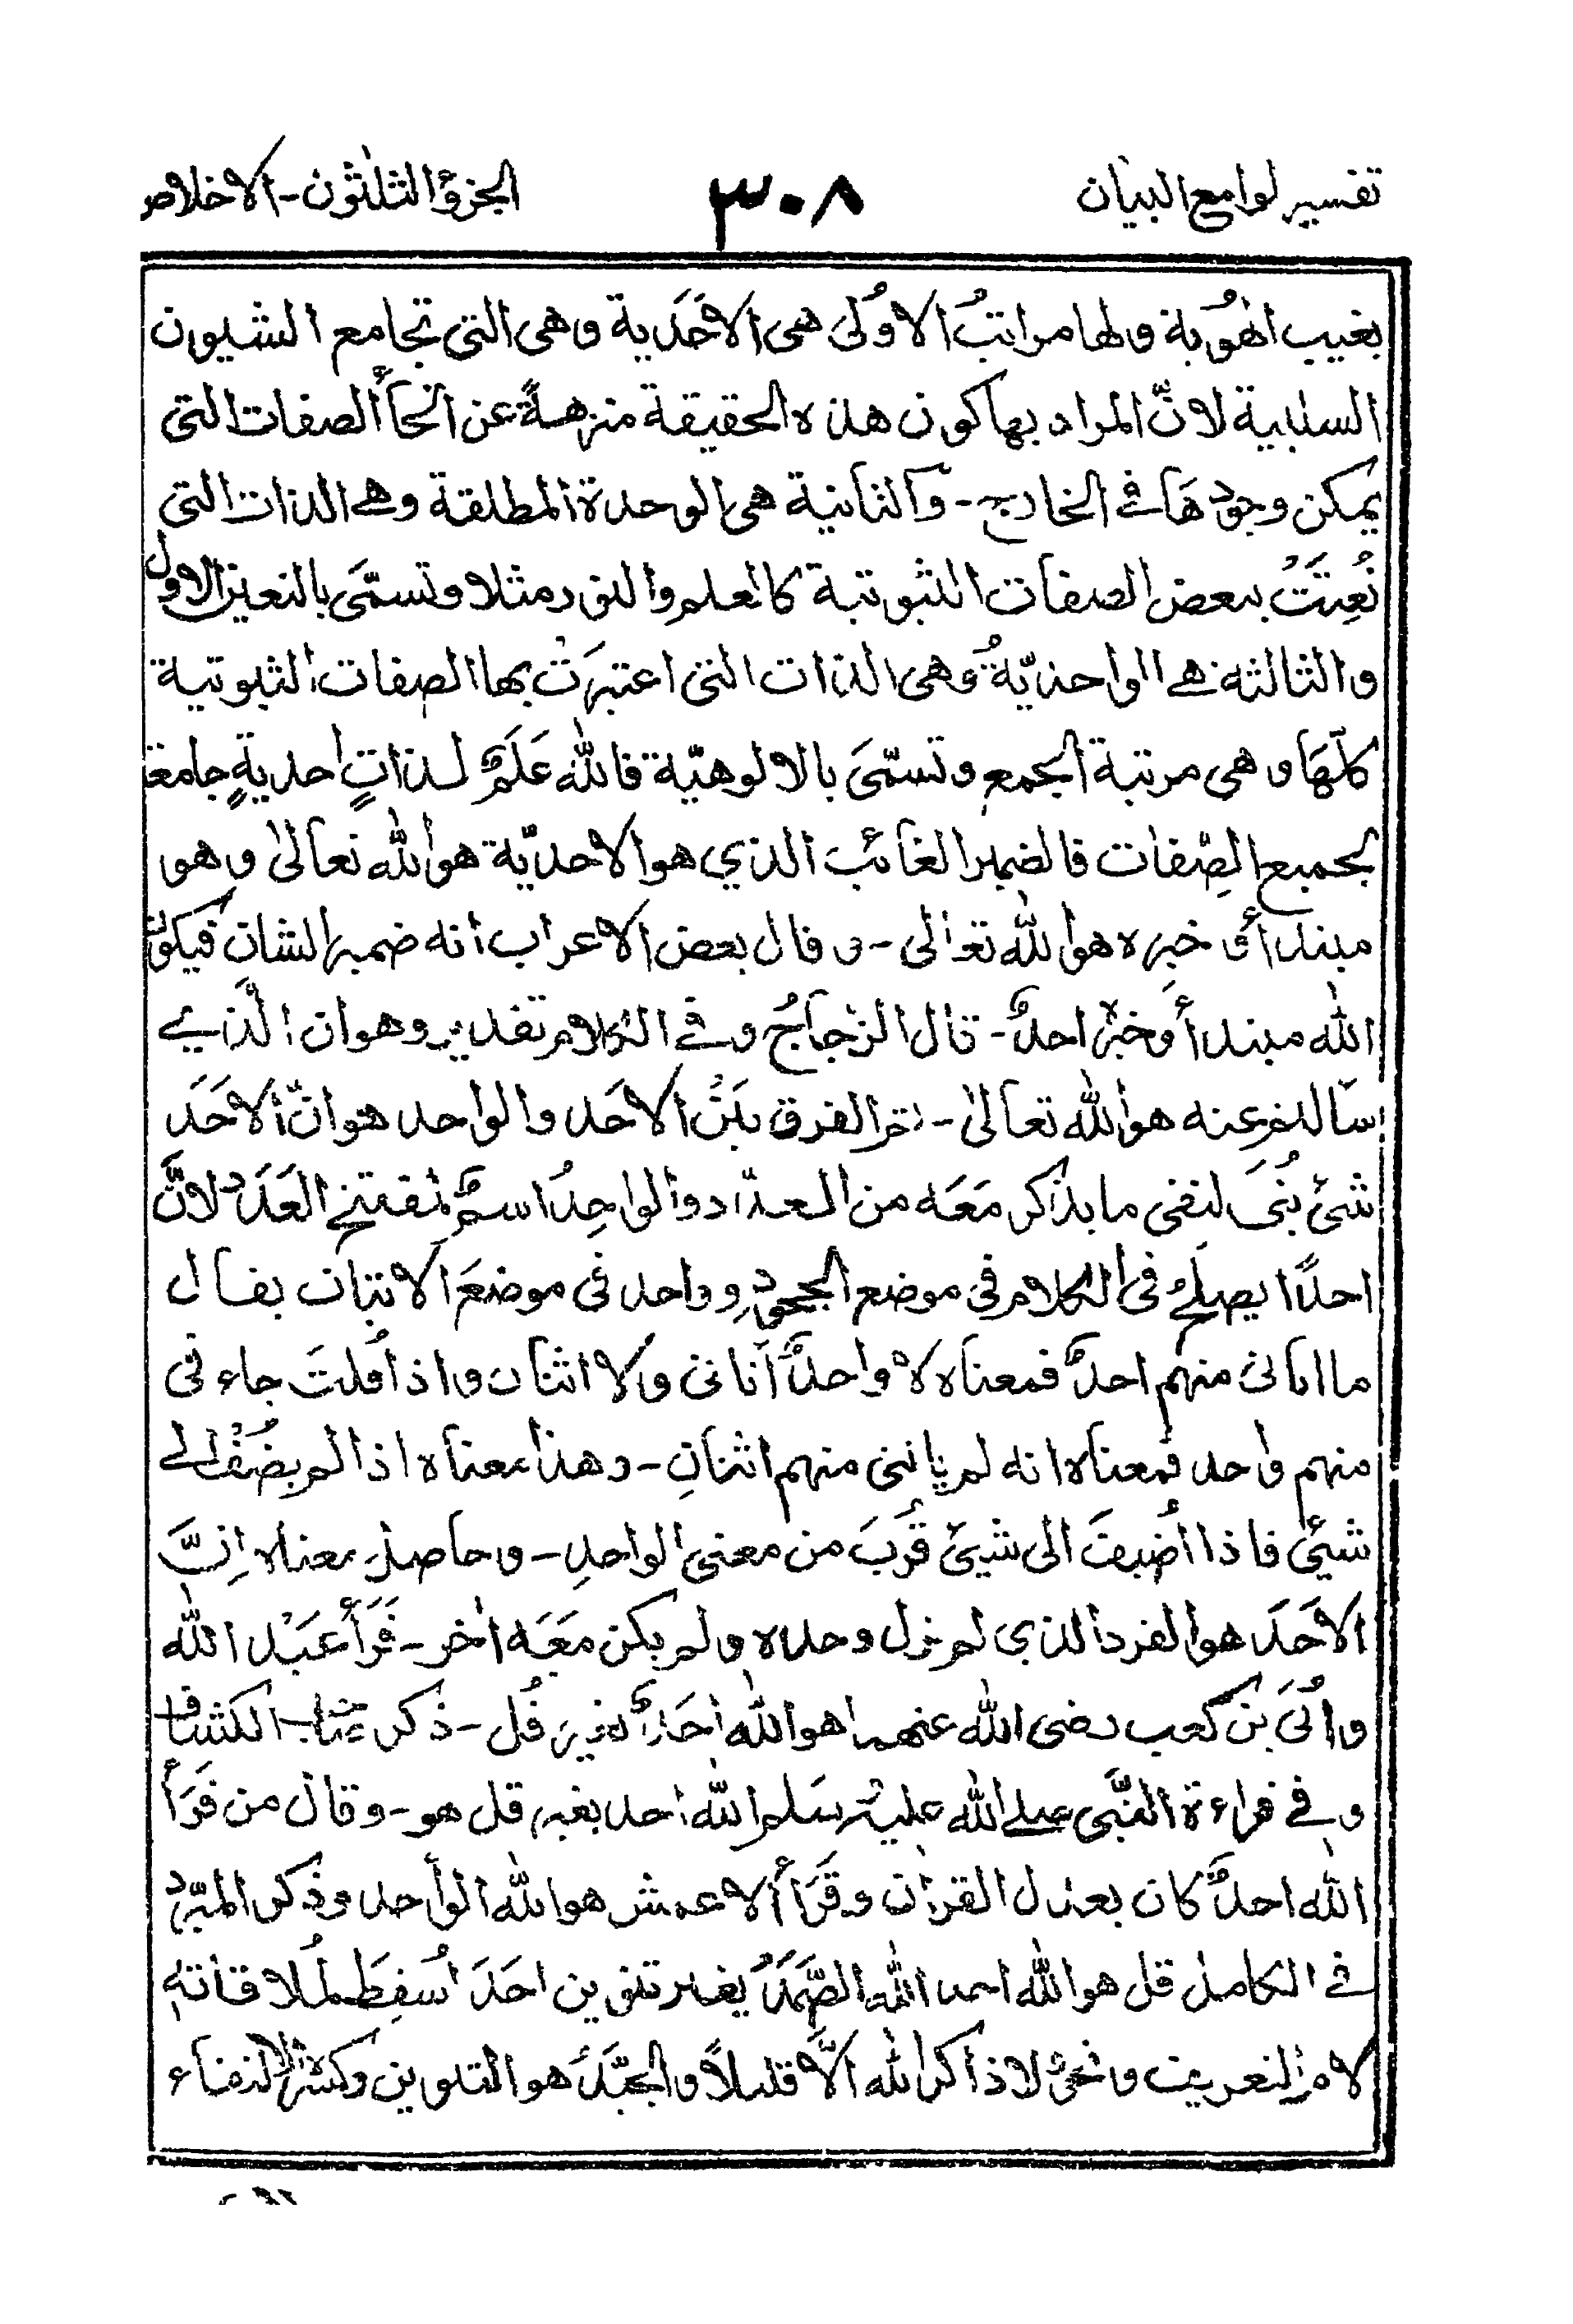 تفسير لوامع البيان ٣٠٨ الجزؤ الثلٰثون - الاخلاص
بغيب الهُوية ولها مراتبُ الاُولىٰ هى الاحَدية وهى التى تجامع الشيون
السلبية لانّ المراد بها كون هذه الحقيقة منزهةً عن انحأ الصفات التى
يمكن وجودها فے الخارج - والثانية هى الوحدة المطلقة وهے الذات التى
نُعِتَتُ ببعض الصفات الثبوتية كالعلم والنور مثلا وتسمّى بالتعين الاول
والثالثه هے الواحديّةُ وهى الذات التى اعتبرَتْ بها الصفات الثبوتية
كلّهَا وهي مرتبة الجمع وتسمّىَ بالالوهيّة فالله عَلَمٌ لذاتٍ احديةٍ جامعة
لجميع الصِّفات فالضمير الغائب الذي هو الاحديّة هو الله تعالىٰ وهو
مبتدأ و خبره هو الله تعالى - و قال بعض الاعراب انه ضمير الشان فيكون
الله مبتدأ وخبره احدٌ - قال الزجاجُ وفے الكلام تقدير وهو ان الّذي
سالتم عنه هو الله تعالىٰ - ثم الفرق بَيْنَ الاحَد والواحد هو انّ الاحَد
شئ بُنىَ لنفى ما يذكر مَعَه من العدد والواحِدُ اسمٌ لمفتتح العَدَد لانَّ
احدًا يصلحُ فى الكلام فى موضع الجحودِ و واحد فى موضعَ الاثبات يقال
ما اتانى منهم احدٌ فمعناه لا واحدٌ أتانى ولا اثنان واذا قُلتَ جاءنى
منهم واحد فمعناه انه لم ياتنى منهم اثنانِ - وهذا معناه اذا لم يضَفْ الى
شيئ فاذا اُضيفَ الى شيئ قَرُبَ من معنى الواحدِ - وحاصل معناه اِنَّ
الاحَدَ هو الفرد الذي لم يزل وحده ولم يكن مَعَه اٰخر - قَرَأَ عَبْد الله
واُبَىّ بن كعب رضى الله عنهما هو الله احَدٌ بغير قُل - ذكر الكشاف
وفے قراءة النَّبى صلے الله عليه وسَلم الله احد بغير قل هو - وقال من قَرَأَ
الله احدٌ كان بعدل القراٰن وقَرَأَ الاعمش هو الله الواحد وذكر المبرّد
فے الكامل قل هو الله احد الله الصَّمَدُ بغير تنوين احَدَ اُسقِطَ لمُلاقاتهٖ
لام التعريف ونحوه لا ذاكر الله الاَّ قليلاً والجيّدَ هو التنوين وكسره لالتقاء